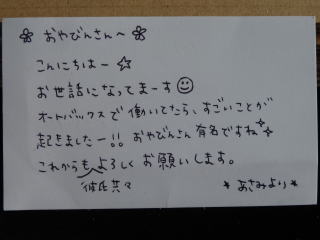 ❀ おやびんさんへ ❀
こんにちはー☆
お世話になってまーす☺
オートバックスで働いてたら、すごいことが
起きましたー!! おやびんさん有名ですね✧
これからもよろしくお願いします。
彼氏共々
★あさみより★